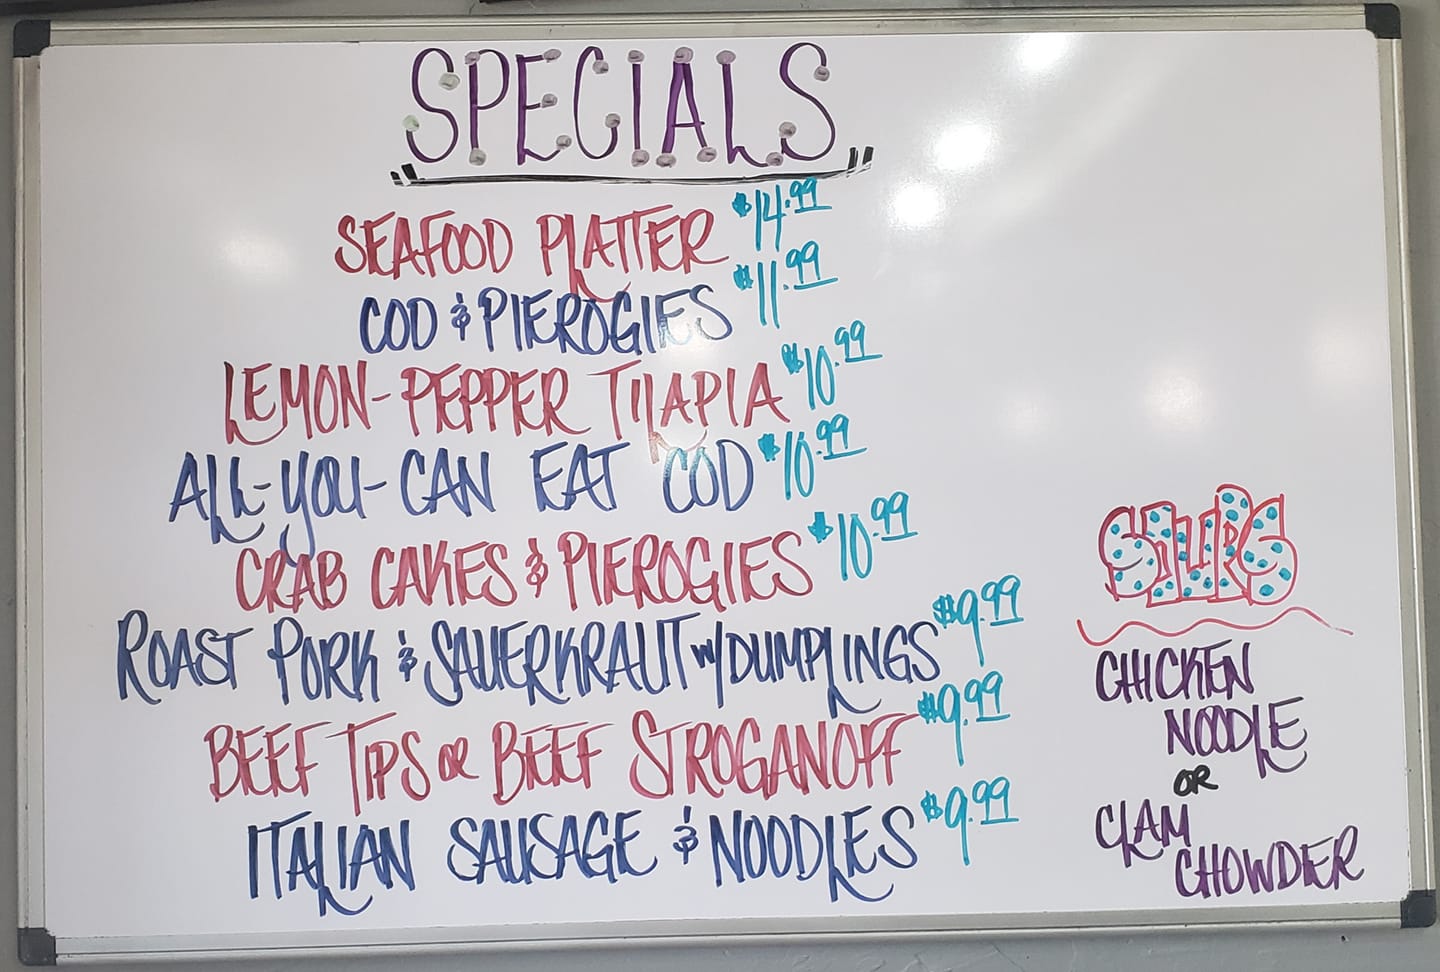 SPECIALS
SEAFOOD PLATTER $14.99
COD & PIEROGIES $11.99
LEMON-PEPPER TILAPIA $10.99
ALL-YOU-CAN EAT COD $10.99
CRAB CAKES & PIEROGIES $10.99
ROAST PORK & SAUERKRAUT w/ DUMPLINGS $9.99
BEEF TIPS OR BEEF STROGANOFF $9.99
ITALIAN SAUSAGE & NOODLES $9.99
CHICKEN
NOODLE
OR
CLAM
CHOWDER